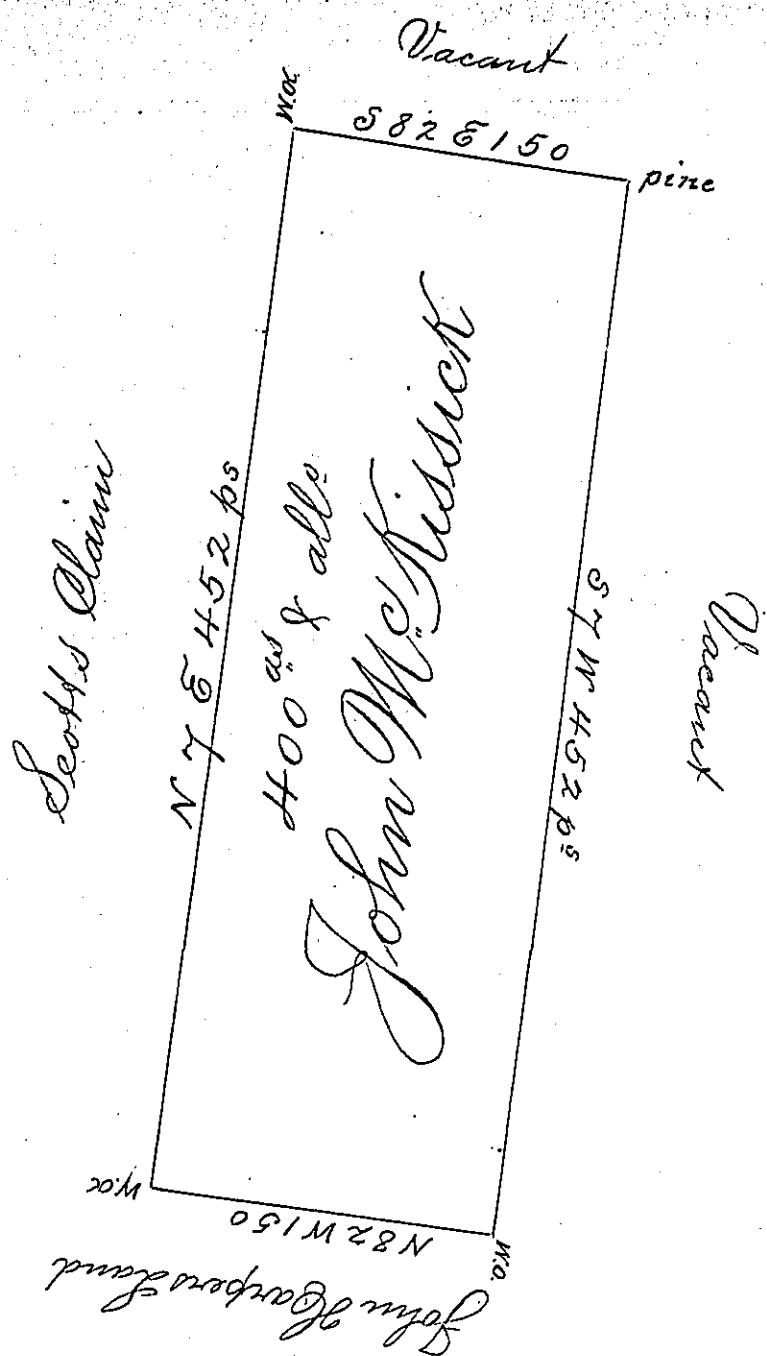 Vacant
W.O.
S 82 E 150
pine
Scotts Claim
N 7 E 452 ps
400 as & allo
John McKissick
S 7 W 452 ps
Vacant
W.O.
N 82 W 150
W.O.
John Harpers Land